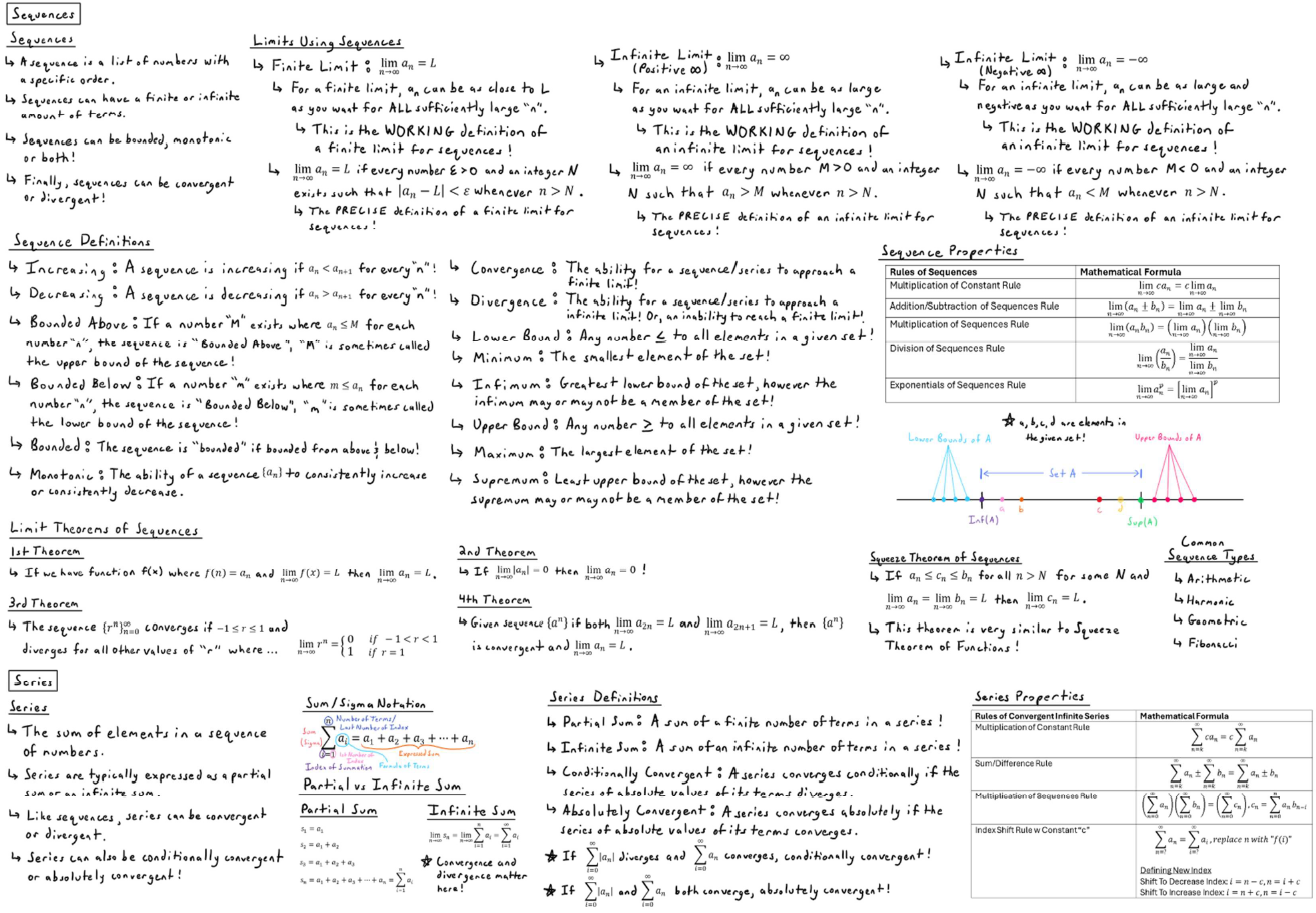 Sequences
Sequences
↳ A sequence is a list of numbers with
a specific order.
↳ Sequences can have a finite or infinite
amount of terms.
↳ Sequences can be bounded, monotonic
or both!
↳ Finally, sequences can be convergent
or divergent!
Limits Using Sequences
↳ Finite Limit : lim n→∞ aₙ = L
↳ For a finite limit, aₙ can be as close to L
as you want for ALL sufficiently large "n".
↳ This is the WORKING definition of
a finite limit for sequences!
↳ lim n→∞ aₙ = L if every number ε>0 and an integer N
exists such that |aₙ − L| < ε whenever n > N.
↳ The PRECISE definition of a finite limit for
sequences!
↳ Infinite Limit : lim n→∞ aₙ = ∞
(Positive ∞)
↳ For an infinite limit, aₙ can be as large
as you want for ALL sufficiently large "n".
↳ This is the WORKING definition of
an infinite limit for sequences!
↳ lim n→∞ aₙ = ∞ if every number M>0 and an integer
N such that aₙ > M whenever n > N.
↳ The PRECISE definition of an infinite limit for
sequences!
↳ Infinite Limit : lim n→∞ aₙ = −∞
(Negative ∞)
↳ For an infinite limit, aₙ can be as large and
negative as you want for ALL sufficiently large "n".
↳ This is the WORKING definition of
an infinite limit for sequences!
↳ lim n→∞ aₙ = −∞ if every number M<0 and an integer
N such that aₙ < M whenever n > N.
↳ The PRECISE definition of an infinite limit for
sequences!
Sequence Definitions
↳ Increasing : A sequence is increasing if aₙ < aₙ₊₁ for every "n"!
↳ Decreasing : A sequence is decreasing if aₙ > aₙ₊₁ for every "n"!
↳ Bounded Above : If a number "M" exists where aₙ ≤ M for each
number "n", the sequence is "Bounded Above", "M" is sometimes called
the upper bound of the sequence!
↳ Bounded Below : If a number "m" exists where m ≤ aₙ for each
number "n", the sequence is "Bounded Below", "m" is sometimes called
the lower bound of the sequence!
↳ Bounded : The sequence is "bounded" if bounded from above & below!
↳ Monotonic : The ability of a sequence {aₙ} to consistently increase
or consistently decrease.
↳ Convergence : The ability for a sequence/series to approach a
finite limit!
↳ Divergence : The ability for a sequence/series to approach a
infinite limit! Or, an inability to reach a finite limit!
↳ Lower Bound : Any number ≤ to all elements in a given set!
↳ Minimum : The smallest element of the set!
↳ Infimum : Greatest lower bound of the set, however the
infimum may or may not be a member of the set!
↳ Upper Bound : Any number ≥ to all elements in a given set!
↳ Maximum : The largest element of the set!
↳ Supremum : Least upper bound of the set, however the
supremum may or may not be a member of the set!
Sequence Properties
Rules of Sequences Mathematical Formula
Multiplication of Constant Rule lim n→∞ caₙ = c lim n→∞ aₙ
Addition/Subtraction of Sequences Rule lim n→∞ (aₙ ± bₙ) = lim n→∞ aₙ ± lim n→∞ bₙ
Multiplication of Sequences Rule lim n→∞ (aₙbₙ) = (lim n→∞ aₙ)(lim n→∞ bₙ)
Division of Sequences Rule lim n→∞ (aₙ/bₙ) = lim n→∞ aₙ / lim n→∞ bₙ
Exponentials of Sequences Rule lim n→∞ aₙᵖ = [lim n→∞ aₙ]ᵖ
★ a, b, c, d are elements in
the given set!
Lower Bounds of A
Upper Bounds of A
Set A
a b c d
Inf(A) Sup(A)
Limit Theorems of Sequences
1st Theorem
↳ If we have function f(x) where f(n) = aₙ and lim n→∞ f(x) = L then lim n→∞ aₙ = L.
2nd Theorem
↳ If lim n→∞ |aₙ| = 0 then lim n→∞ aₙ = 0 !
3rd Theorem
↳ The sequence {rⁿ}∞ n=0 converges if −1 ≤ r ≤ 1 and
diverges for all other values of "r" where ...
lim n→∞ rⁿ = { 0 if −1 < r < 1
1 if r = 1
4th Theorem
↳ Given sequence {aⁿ} if both lim n→∞ a₂ₙ = L and lim n→∞ a₂ₙ₊₁ = L, then {aⁿ}
is convergent and lim n→∞ aₙ = L.
Squeeze Theorem of Sequences
↳ If aₙ ≤ cₙ ≤ bₙ for all n > N for some N and
lim n→∞ aₙ = lim n→∞ bₙ = L then lim n→∞ cₙ = L.
↳ This theorem is very similar to Squeeze
Theorem of Functions!
Common
Sequence Types
↳ Arithmetic
↳ Harmonic
↳ Geometric
↳ Fibonacci
Series
Series
↳ The sum of elements in a sequence
of numbers.
↳ Series are typically expressed as a partial
sum or an infinite sum.
↳ Like sequences, series can be convergent
or divergent.
↳ Series can also be conditionally convergent
or absolutely convergent!
Sum/Sigma Notation
Number of Terms/
Last Number of Index
Sum
(Sigma)
n ∑ i=1 aᵢ = a₁ + a₂ + a₃ + ⋯ + aₙ
1st Number of
Index
Expressed Sum
Index of Summation
Formula of Terms
Partial vs Infinite Sum
Partial Sum
s₁ = a₁
s₂ = a₁ + a₂
s₃ = a₁ + a₂ + a₃
sₙ = a₁ + a₂ + a₃ + ⋯ + aₙ = n ∑ i=1 aᵢ
Infinite Sum
lim n→∞ sₙ = lim n→∞ n ∑ i=1 aᵢ = ∞ ∑ i=1 aᵢ
★ Convergence and
divergence matter
here!
Series Definitions
↳ Partial Sum : A sum of a finite number of terms in a series!
↳ Infinite Sum : A sum of an infinite number of terms in a series!
↳ Conditionally Convergent : A series converges conditionally if the
series of absolute values of its terms diverges.
↳ Absolutely Convergent : A series converges absolutely if the
series of absolute values of its terms converges.
★ If ∞ ∑ i=0 |aₙ| diverges and ∞ ∑ i=0 aₙ converges, conditionally convergent!
★ If ∞ ∑ i=0 |aₙ| and ∞ ∑ i=0 aₙ both converge, absolutely convergent!
Series Properties
Rules of Convergent Infinite Series Mathematical Formula
Multiplication of Constant Rule ∞ ∑ n=k caₙ = c ∞ ∑ n=k aₙ
Sum/Difference Rule ∞ ∑ n=k aₙ ± ∞ ∑ n=k bₙ = ∞ ∑ n=k aₙ ± bₙ
Multiplication of Sequences Rule (∞ ∑ n=0 aₙ)(∞ ∑ n=0 bₙ) = (∞ ∑ n=0 cₙ), cₙ = ∑ aₙ bₙ₋ᵢ
Index Shift Rule w Constant "c" ∑ aₙ = ∑ aᵢ, replace n with "f(i)"
Defining New Index
Shift To Decrease Index: i = n − c, n = i + c
Shift To Increase Index: i = n + c, n = i − c